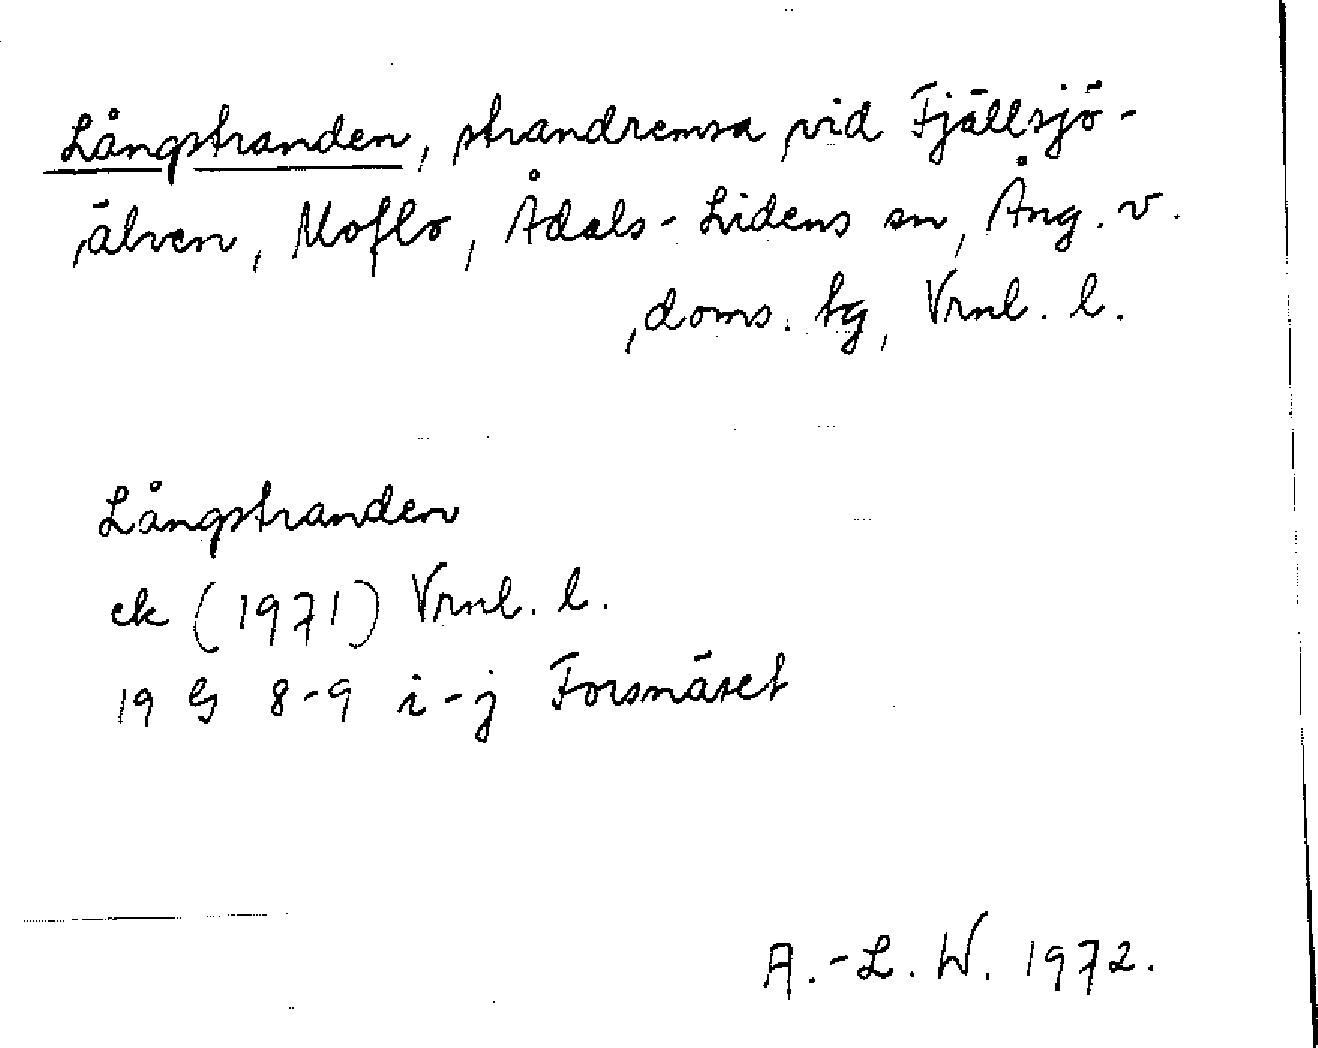 Långstranden, strandremsa vid Fjällsjö-
älven, Moflo, Ådals-Lidens sn, Ång. v.
doms. tg, Vrnl. l.
Långstranden
ek (1971) Vrnl. l.
19 G 8-9 i-j Forsnäset
A.-L. W. 1972.